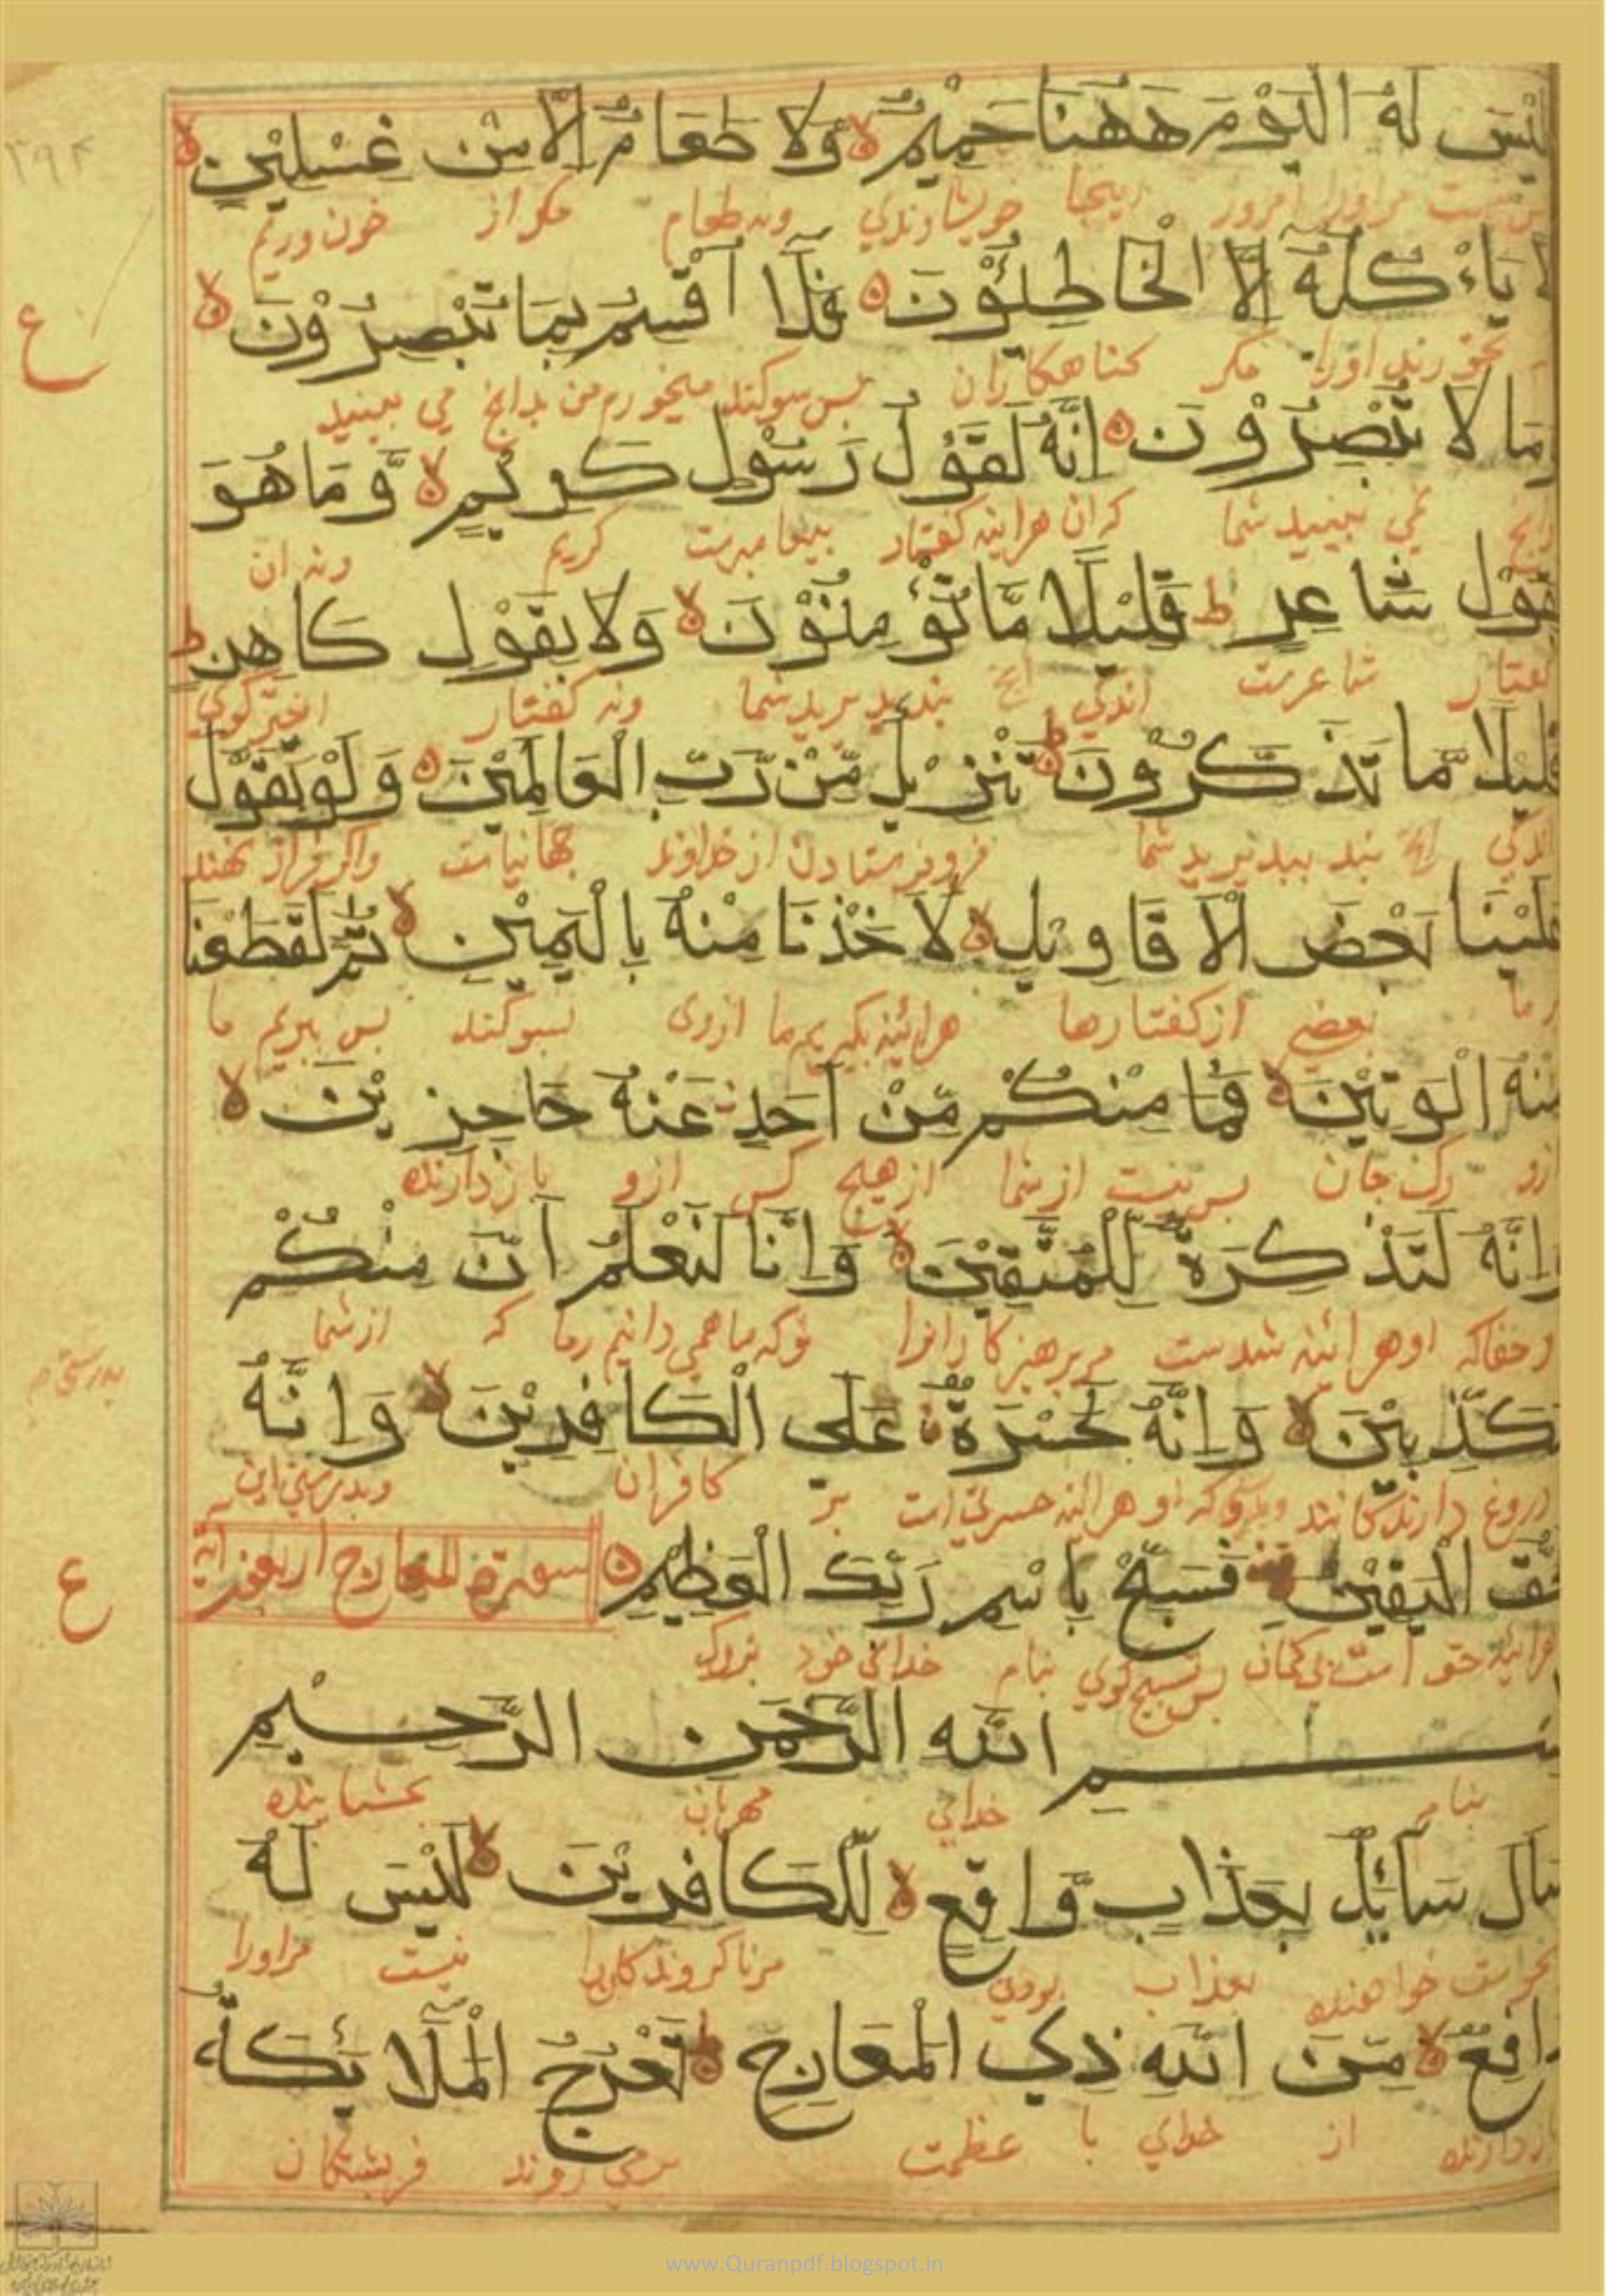 لَيْسَ لَهُ الْيَوْمَ هٰهُنَا حَمِيْمٌ ۙ وَّلَا طَعَامٌ اِلَّا مِنْ غِسْلِيْنٍ ۙ
نيست مراورا امروز اينجا خويشاوندي ونه طعام مكر از خون وريم
لَا يَاْءكُلُهُ اِلَّا الْخَاطِئُوْنَ ۝ فَلَا اُقْسِمُ بِمَا تُبْصِرُوْنَ ۙ
ع
نخورند اورا مكر كناهكاران بس سوكند ميخورم من بدانچ مي بينيد
وَمَا لَا تُبْصِرُوْنَ ۝ اِنَّهُ لَقَوْلُ رَسُوْلٍ كَرِيْمٍ ۙ وَّمَا هُوَ
نمي بينيد شما كران هراينه كفتار بيغامبرست كريم ونه ان
بِقَوْلِ شَاعِرٍ ط قَلِيْلًا مَّا تُؤْمِنُوْنَ ۙ وَلَا بِقَوْلِ كَاهِنٍ ط
كفتار شاعرست اندكي ونه كفتار اخترگوي
قَلِيْلًا مَّا تَذَكَّرُوْنَ ط تَنْزِيْلٌ مِّنْ رَّبِّ الْعَالَمِيْنَ ۝ وَلَوْ تَقَوَّلَ
اندكي انچ پند بپذيريد شما فروفرستادن از خداوند جهانيانست واكر فراز نهند
عَلَيْنَا بَعْضَ الْاَقَاوِيْلِ ۙ لَاَخَذْنَا مِنْهُ بِالْيَمِيْنِ ۙ ثُمَّ لَقَطَعْنَا
بر ما بعضي از كفتارها هرائينه بكيريم ما ازوى بسوكند بس ببريم ما
مِنْهُ الْوَتِيْنَ ۙ فَمَا مِنْكُمْ مِّنْ اَحَدٍ عَنْهُ حَاجِزِيْنَ ۙ
ازو رك جان بس نيست از شما از هيچ كس ازو بازدارنده
وَاِنَّهُ لَتَذْكِرَةٌ لِّلْمُتَّقِيْنَ ۙ وَاِنَّا لَنَعْلَمُ اَنَّ مِنْكُمْ
وحقاكه او هرائينه پندست مر پرهيزكارانرا ما همي دانيم كه از شما
مُكَذِّبِيْنَ ۙ وَاِنَّهُ لَحَسْرَةٌ عَلَى الْكَافِرِيْنَ ۙ وَاِنَّهُ
دروغ دارندكانند او هراينه حسرتي است بر كافران وبدرستي اين
لَحَقُّ الْيَقِيْنِ فَسَبِّحْ بِاسْمِ رَبِّكَ الْعَظِيْمِ ۝ سورة المعارج اربعون اية
ع
هراينه حق است بي كمان بس تسبيح كوي بنام خداي خود بزرك
بِسْمِ اللّٰهِ الرَّحْمٰنِ الرَّحِيْمِ
بنام خداي مهربان بخشاينده
سَاَلَ سَآئِلٌ بِعَذَابٍ وَّاقِعٍ ۙ لِّلْكَافِرِيْنَ ۙ لَيْسَ لَهُ
خواهنده بعذاب بودني مرناكروندكانرا نيست مراورا
دَافِعٌ ۙ مِّنَ اللّٰهِ ذِي الْمَعَارِجِ ط تَعْرُجُ الْمَلَآئِكَةُ
بازدارنده از خداي با عظمت برمي روند فريشتكان
www.Quranpdf.blogspot.in